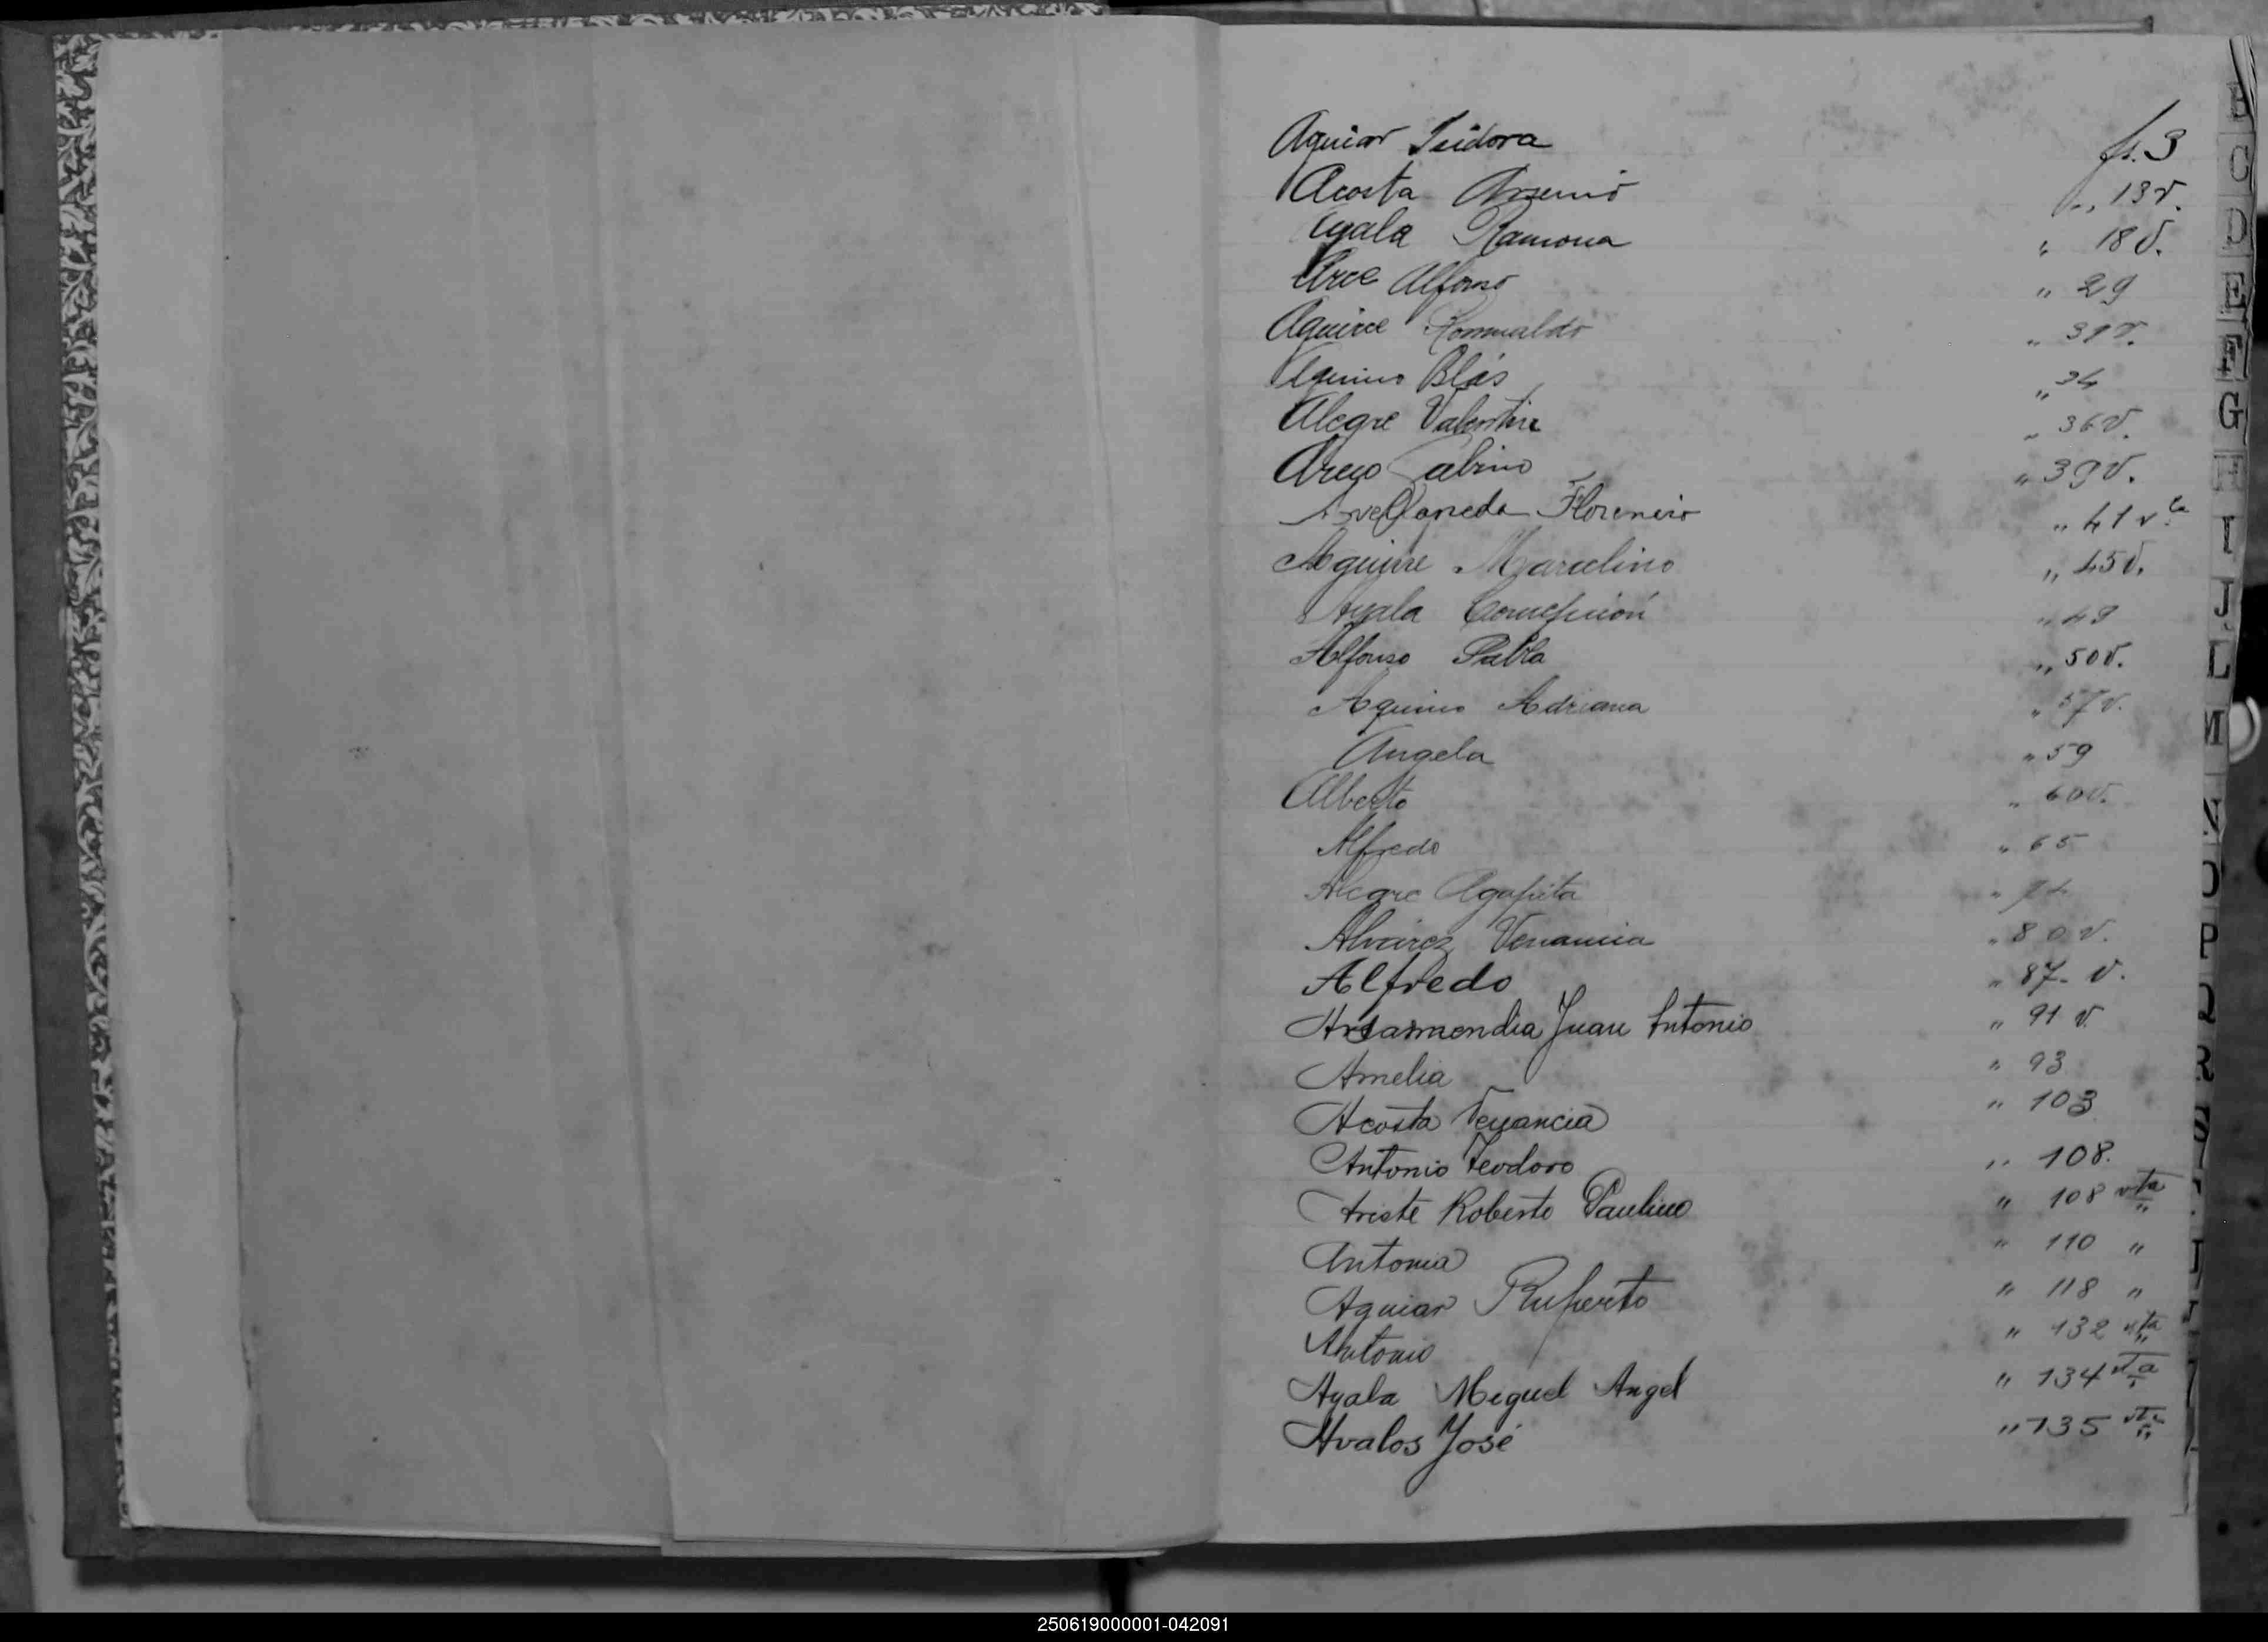 Aguiar Isidora fs. 3
Acosta Arsenio „ 13v.
Ayala Ramona „ 18v.
Arce Alfonso „ 29
Aguirre Romualdo „ 31v.
Aquino Blás „ 34
Alegre Valentin „ 36v.
Arejo Sabino „ 39v.
Avellaneda Florencio „ 41 vta
Aguirre Marcelino „ 45v.
Ayala Concepción „ 49
Alfonso Pabla „ 50v.
Aquino Adriana „ 57v.
Angela „ 59
Alberto „ 60v.
Alfredo „ 65
Alegre Agapita „ 74
Alvarez Venancia „ 80v.
Alfredo „ 87- v.
Arsamendia Juan Antonio „ 91 v.
Amelia „ 93
Acosta Venancia „ 103
Antonio Teodoro „ 108.
Ariste Roberto Paulino „ 108 vta
Antonia „ 110 „
Aguiar Ruperto „ 118 „
Antonio „ 132 vta
Ayala Miguel Angel „ 134 vta
Avalos José „ 135 vta
B
C
D
E
F
G
H
I
J
L
M
N
O
P
Q
R
S
T
250619000001-042091